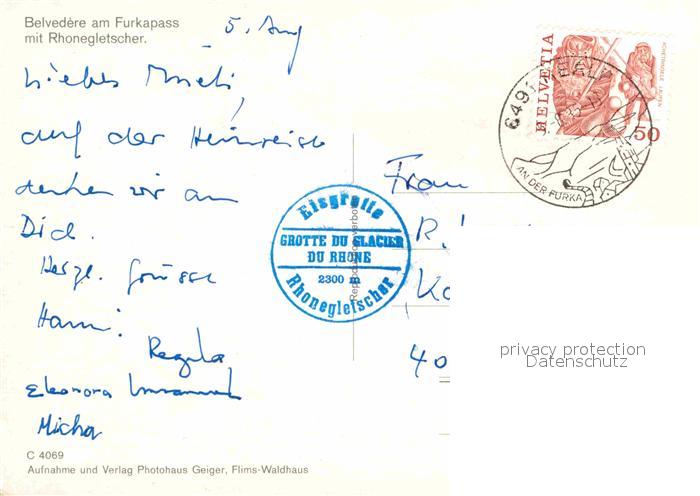 Belvedére am Furkapass
mit Rhonegletscher.
5. Aug
Liebes Mueti,
auf der Heimreise
denken wir an
Dich.
Herzl. Grüsse
Hanni
Regula
Eleonora
Micha
C 4069
Aufnahme und Verlag Photohaus Geiger, Flims-Waldhaus
Eisgrotte
GROTTE DU GLACIER
DU RHONE
2300 m
Rhonegletscher
HELVETIA
50
AN DER FURKA
Frau
R.
40
privacy protection
Datenschutz